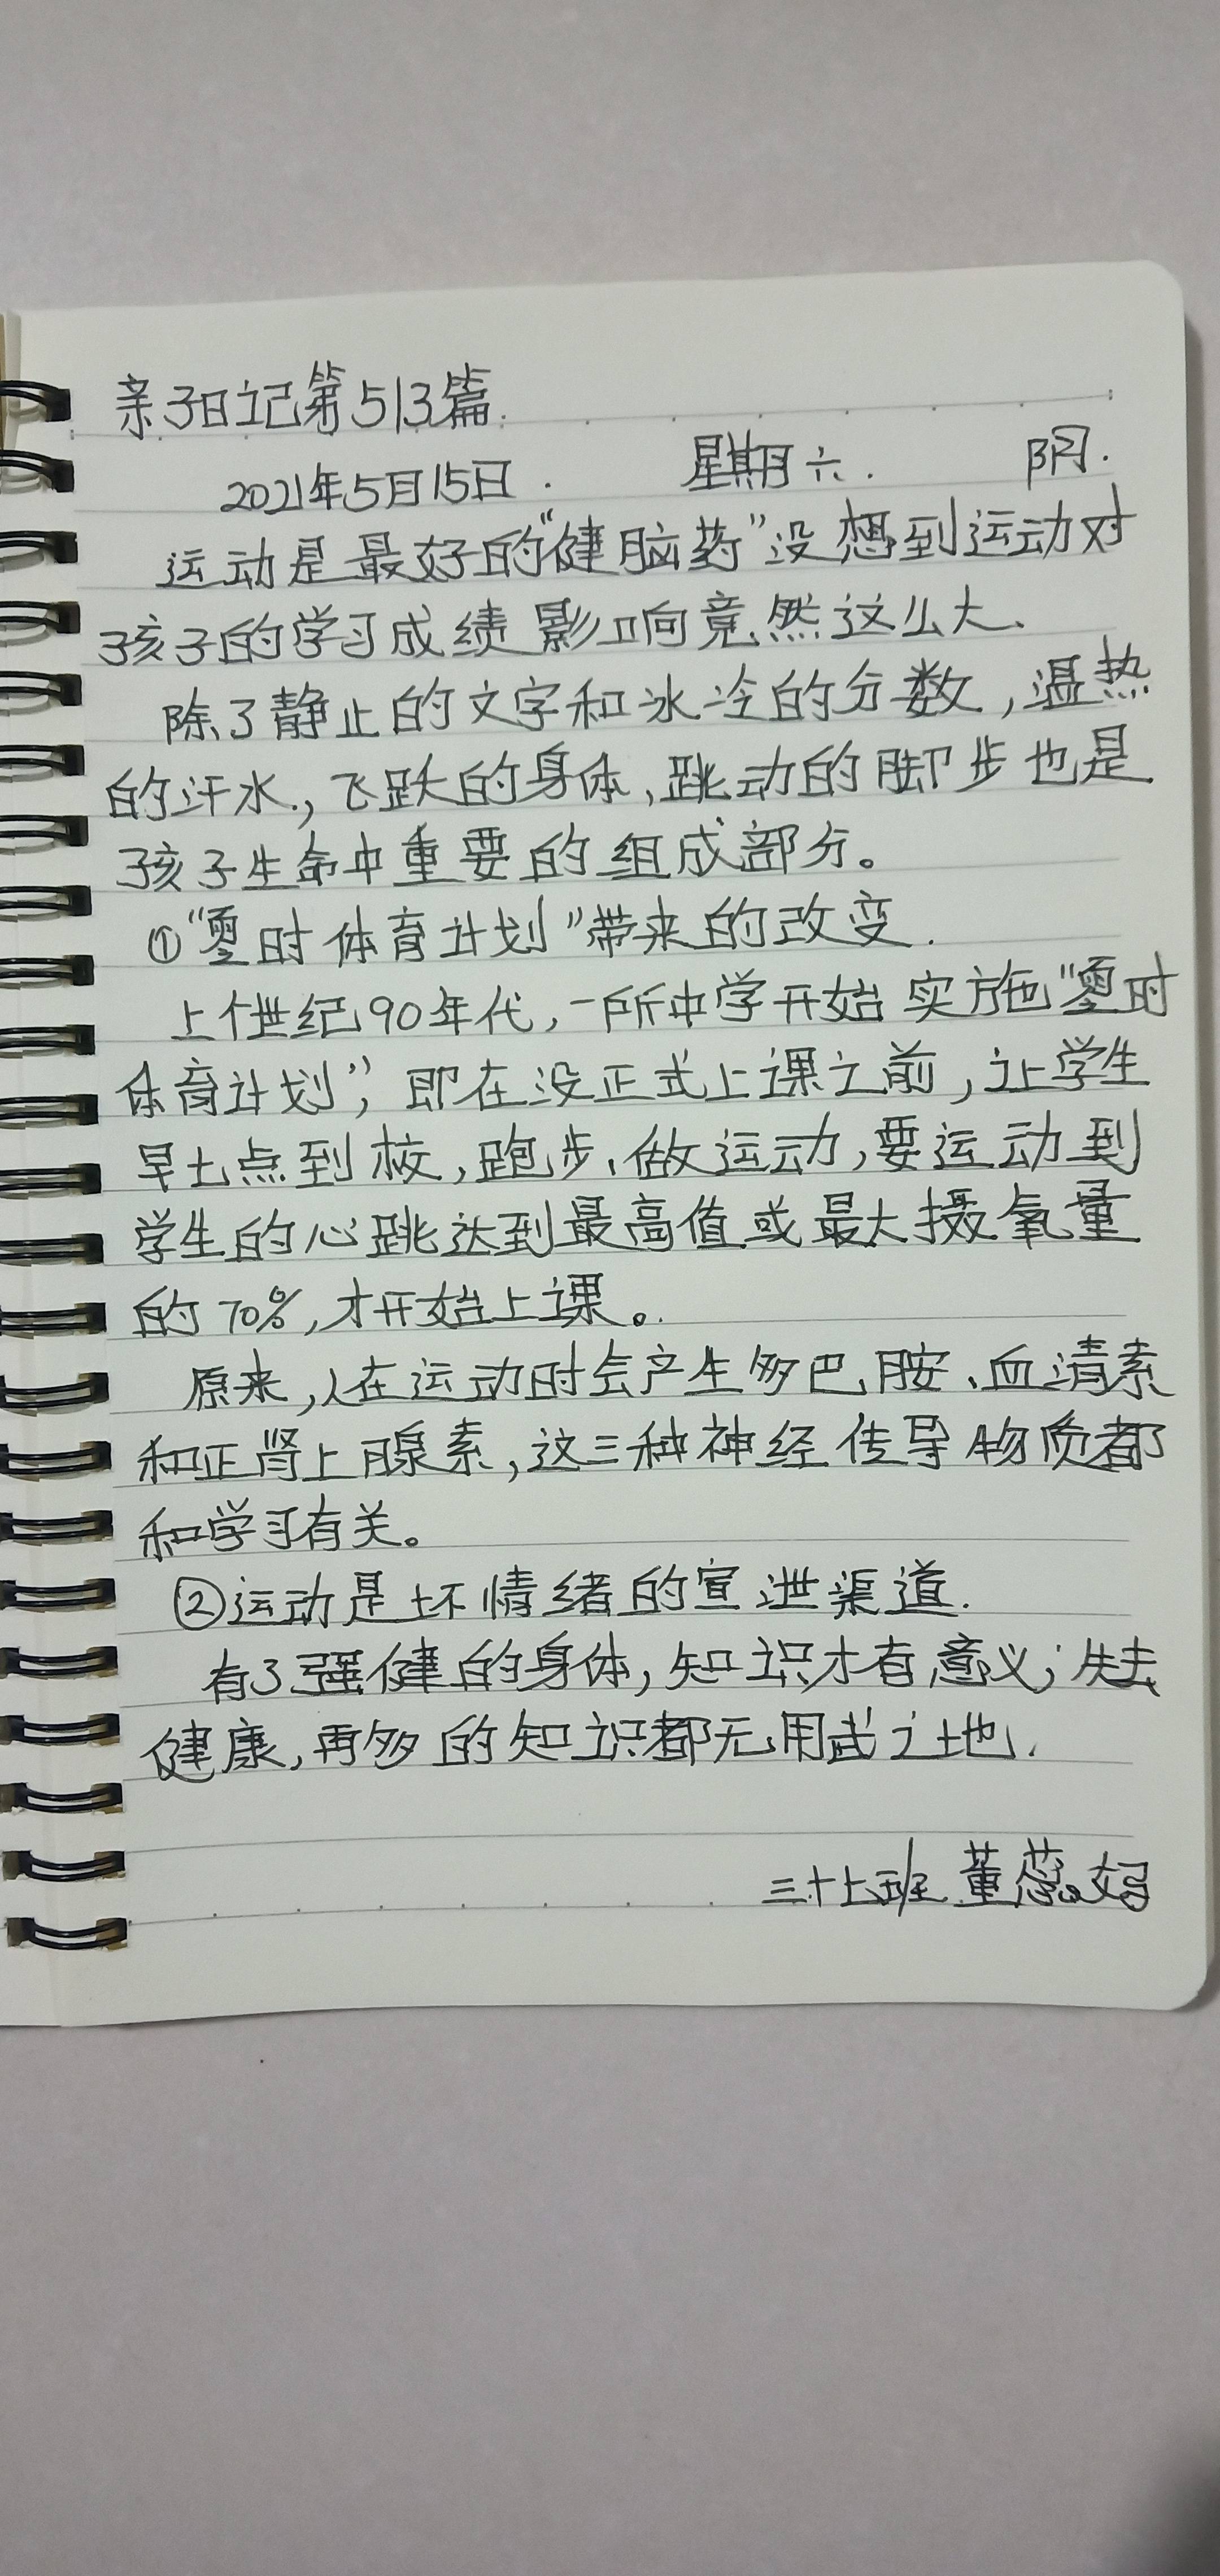 亲子日记第513篇.
2021年5月15日. 星期六. 阴.
运动是最好的“健脑药”没想到运动对
孩子的学习成绩影响竟然这么大.
除了静止的文字和冰冷的分数,温热
的汗水,飞跃的身体,跳动的脚步也是
孩子生命中重要的组成部分。
①“零时体育计划”带来的改变.
上个世纪90年代,一所中学开始实施“零时
体育计划”,即在没正式上课之前,让学生
早七点到校,跑步、做运动,要运动到
学生的心跳达到最高值或最大摄氧量
的70%,才开始上课。
原来,人在运动时会产生多巴胺、血清素
和正肾上腺素,这三种神经传导物质都
和学习有关。
②运动是坏情绪的宣泄渠道.
有了强健的身体,知识才有意义;失去
健康,再多的知识都无用武之地.
三十七班 董蕊妈